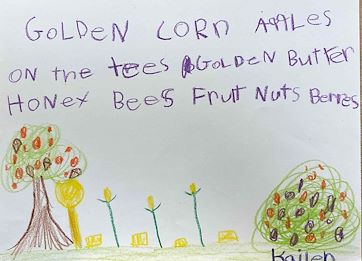 GOLDEN CORN APPLES
ON the tees GOLDEN Butter
HONEY BEES FRuit Nuts Berries